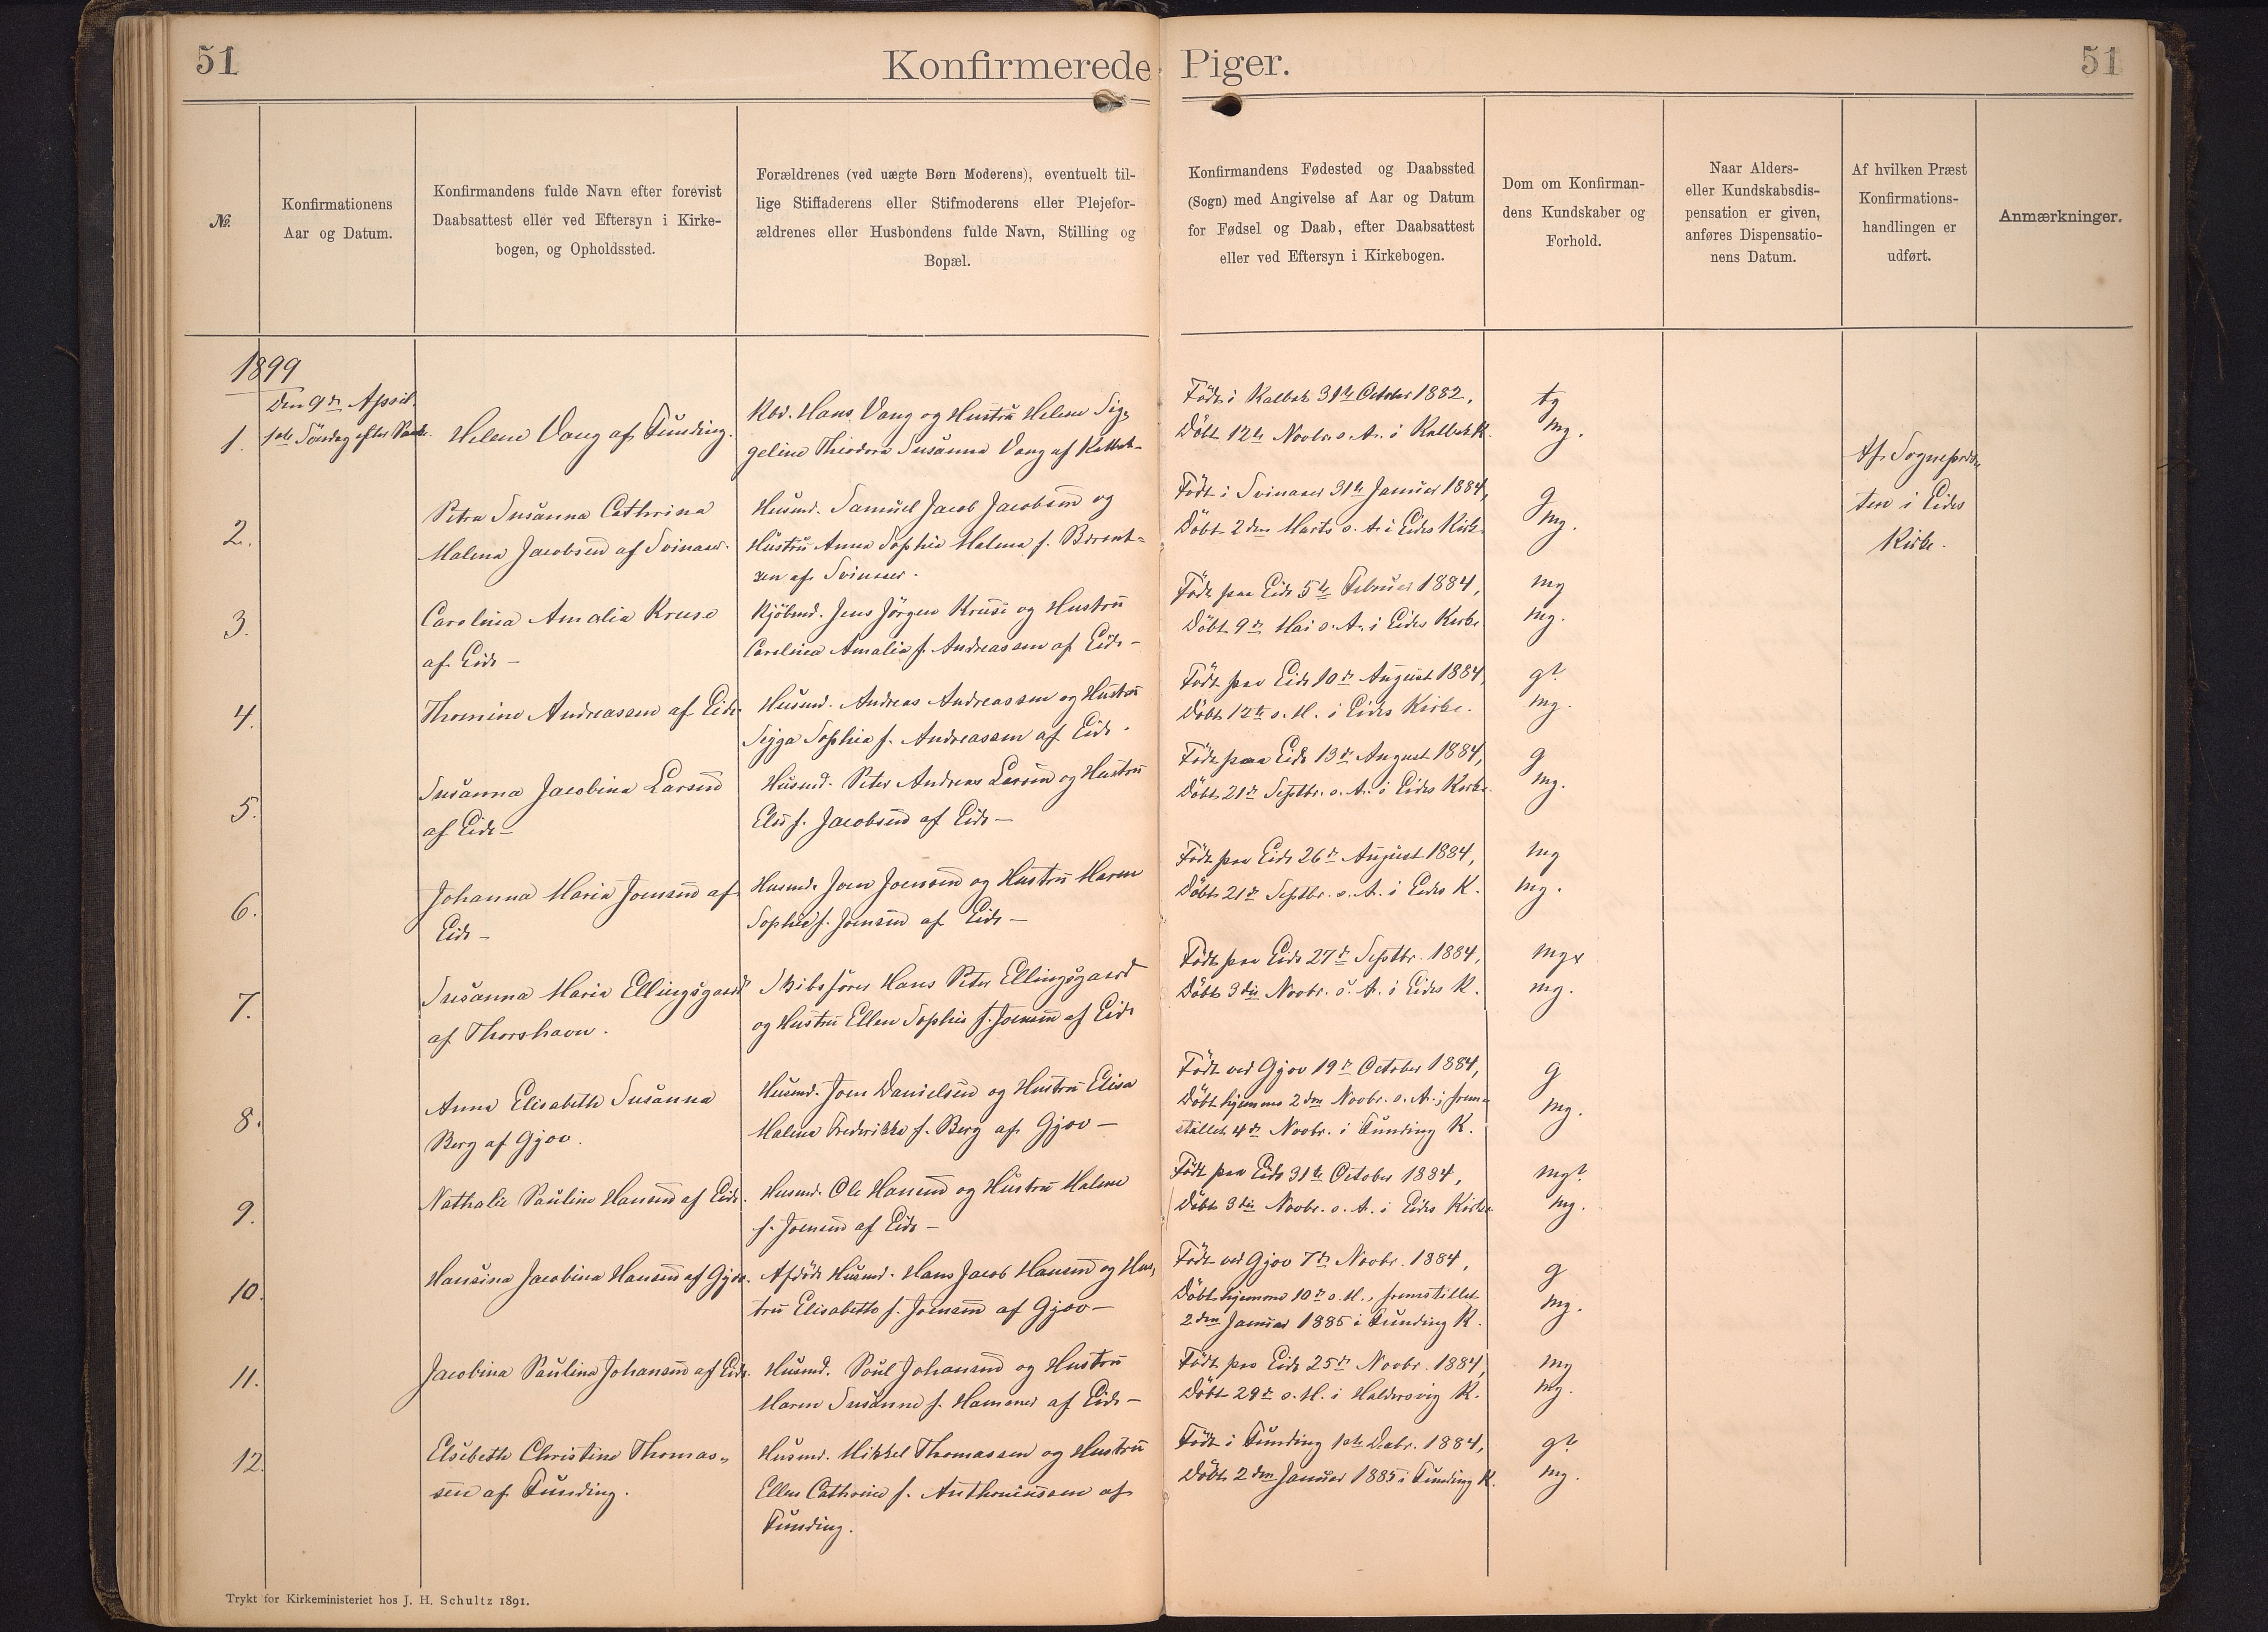 51
Konfirmerede Piger.
51
№.
Konfirmationens
Aar og Datum.
Konfirmandens fulde Navn efter forevist
Daabsattest eller ved Eftersyn i Kirke-
bogen, og Opholdssted.
Forældrenes (ved uægte Børn Moderens), eventuelt til-
lige Stiffaderens eller Stifmoderens eller Plejefor-
ældrenes eller Husbondens fulde Navn, Stilling og
Bopæl.
Konfirmandens Fødested og Daabssted
(Sogn) med Angivelse af Aar og Datum
for Fødsel og Daab, efter Daabsattest
eller ved Eftersyn i Kirkebogen.
Dom om Konfirman-
dens Kundskaber og
Forhold.
Naar Alders-
eller Kundskabsdis-
pensation er given,
anføres Dispensatio-
nens Datum.
Af hvilken Præst
Konfirmations-
handlingen er
udført.
Anmærkninger.
1899
Den 9de April.
1ste Söndag efter Paask.
1.
Helene Vang af Funding.
Kbd. Hans Vang og Hustru Helene Sig-
geline Theodora Susanna Vang af Kalbak
Födt i Kalbak 31te October 1882,
Döbt 12te Novbr. s. A. i Kalbak K.
tg
mg.
Af Sognepræs-
ten i Eides
Kirke.
2.
Petra Susanna Cathrina
Malena Jacobsen af Svinaaer.
Husmd. Samuel Jacob Jacobsen og
Hustru Anna Sophie Malena f. Berent-
sen af Svinaaer.
Födt i Svinaaer 31te Januar 1884,
Döbt 2den Marts s. A. i Eides Kirke
g
mg.
3.
Carolina Amalia Kruse
af Eide –
Kjöbmd. Jens Jörgen Kruse og Hustru
Carolina Amalia f. Andreassen af Eide –
Födt paa Eide 5te Februar 1884,
Döbt 9de Mai s. A. i Eides Kirke
mg
mg.
4.
Thomine Andreassen af Eide
Husmd. Andreas Andreassen og Hustru
Sigga Sophia f. Andreassen af Eide.
Födt paa Eide 10de August 1884,
Döbt 12te s. M. i Eides Kirke.
g?
mg.
5.
Susanna Jacobina Larsen
af Eide –
Husmd. Peter Andreas Larsen og Hustru
Else f. Jacobsen af Eide –
Födt paa Eide 13de August 1884,
Döbt 21de Septbr. s. A. i Eides Kirke
g
mg.
6.
Johanna Maria Joensen af
Eide –
Husmd. Joen Joensen og Hustru Maren
Sophie f. Joensen af Eide –
Födt paa Eide 26de August 1884,
Döbt 21de Septbr. s. A. i Eides K.
mg
mg.
7.
Susanna Maria Ellingsgaard
af Thorshavn.
Skibsförer Hans Peter Ellingsgaard
og Hustru Ellen Sophie f. Joensen af Eide
Födt paa Eide 27de Septbr. 1884,
Döbt 3die Novbr. s. A. i Eides K.
mgx
mg.
8.
Anna Elisabeth Susanna
Berg af Gjov.
Husmd. Joen Danielsen og Hustru Elisa
Malena Frederikka f. Berg af Gjov –
Födt ved Gjov 19de October 1884,
Döbt hjemme 2den Novbr. s. A.; frem-
stillet 4de Novbr. i Funding K.
g
mg.
9.
Nathalie Pauline Hansen af Eide.
Husmd. Ole Hansen og Hustru Malene
f. Joensen af Eide –
Födt paa Eide 31te October 1884,
Döbt 3die Novbr. s. A. i Eides Kirke
mg?
mg.
10.
Hansina Jacobina Hansen af Gjov.
Afdöde Husmd. Hans Jacob Hansen og Hus-
tru Elisabeth f. Joensen af Gjov –
Födt ved Gjov 7de Novbr. 1884,
Döbt hjemme 10de s. M., fremstillet
2den Januar 1885 i Funding K.
g
mg.
11.
Jacobina Paulina Johansen af Eide.
Husmd. Poul Johansen og Hustru
Maren Susanne f. Hammer af Eide –
Födt paa Eide 25de Novbr. 1884,
Döbt 29de s. M. i Haldersvig K.
mg
mg.
12.
Elsebeth Christine Thomas-
sen af Funding.
Husmd. Mikkel Thomassen og Hustru
Ellen Cathrine f. Anthoniussen af
Funding.
Födt i Funding 1ste Decbr. 1884,
Döbt 2den Januar 1885 i Funding K.
g?
mg.
Trykt for Kirkeministeriet hos J. H. Schultz 1891.